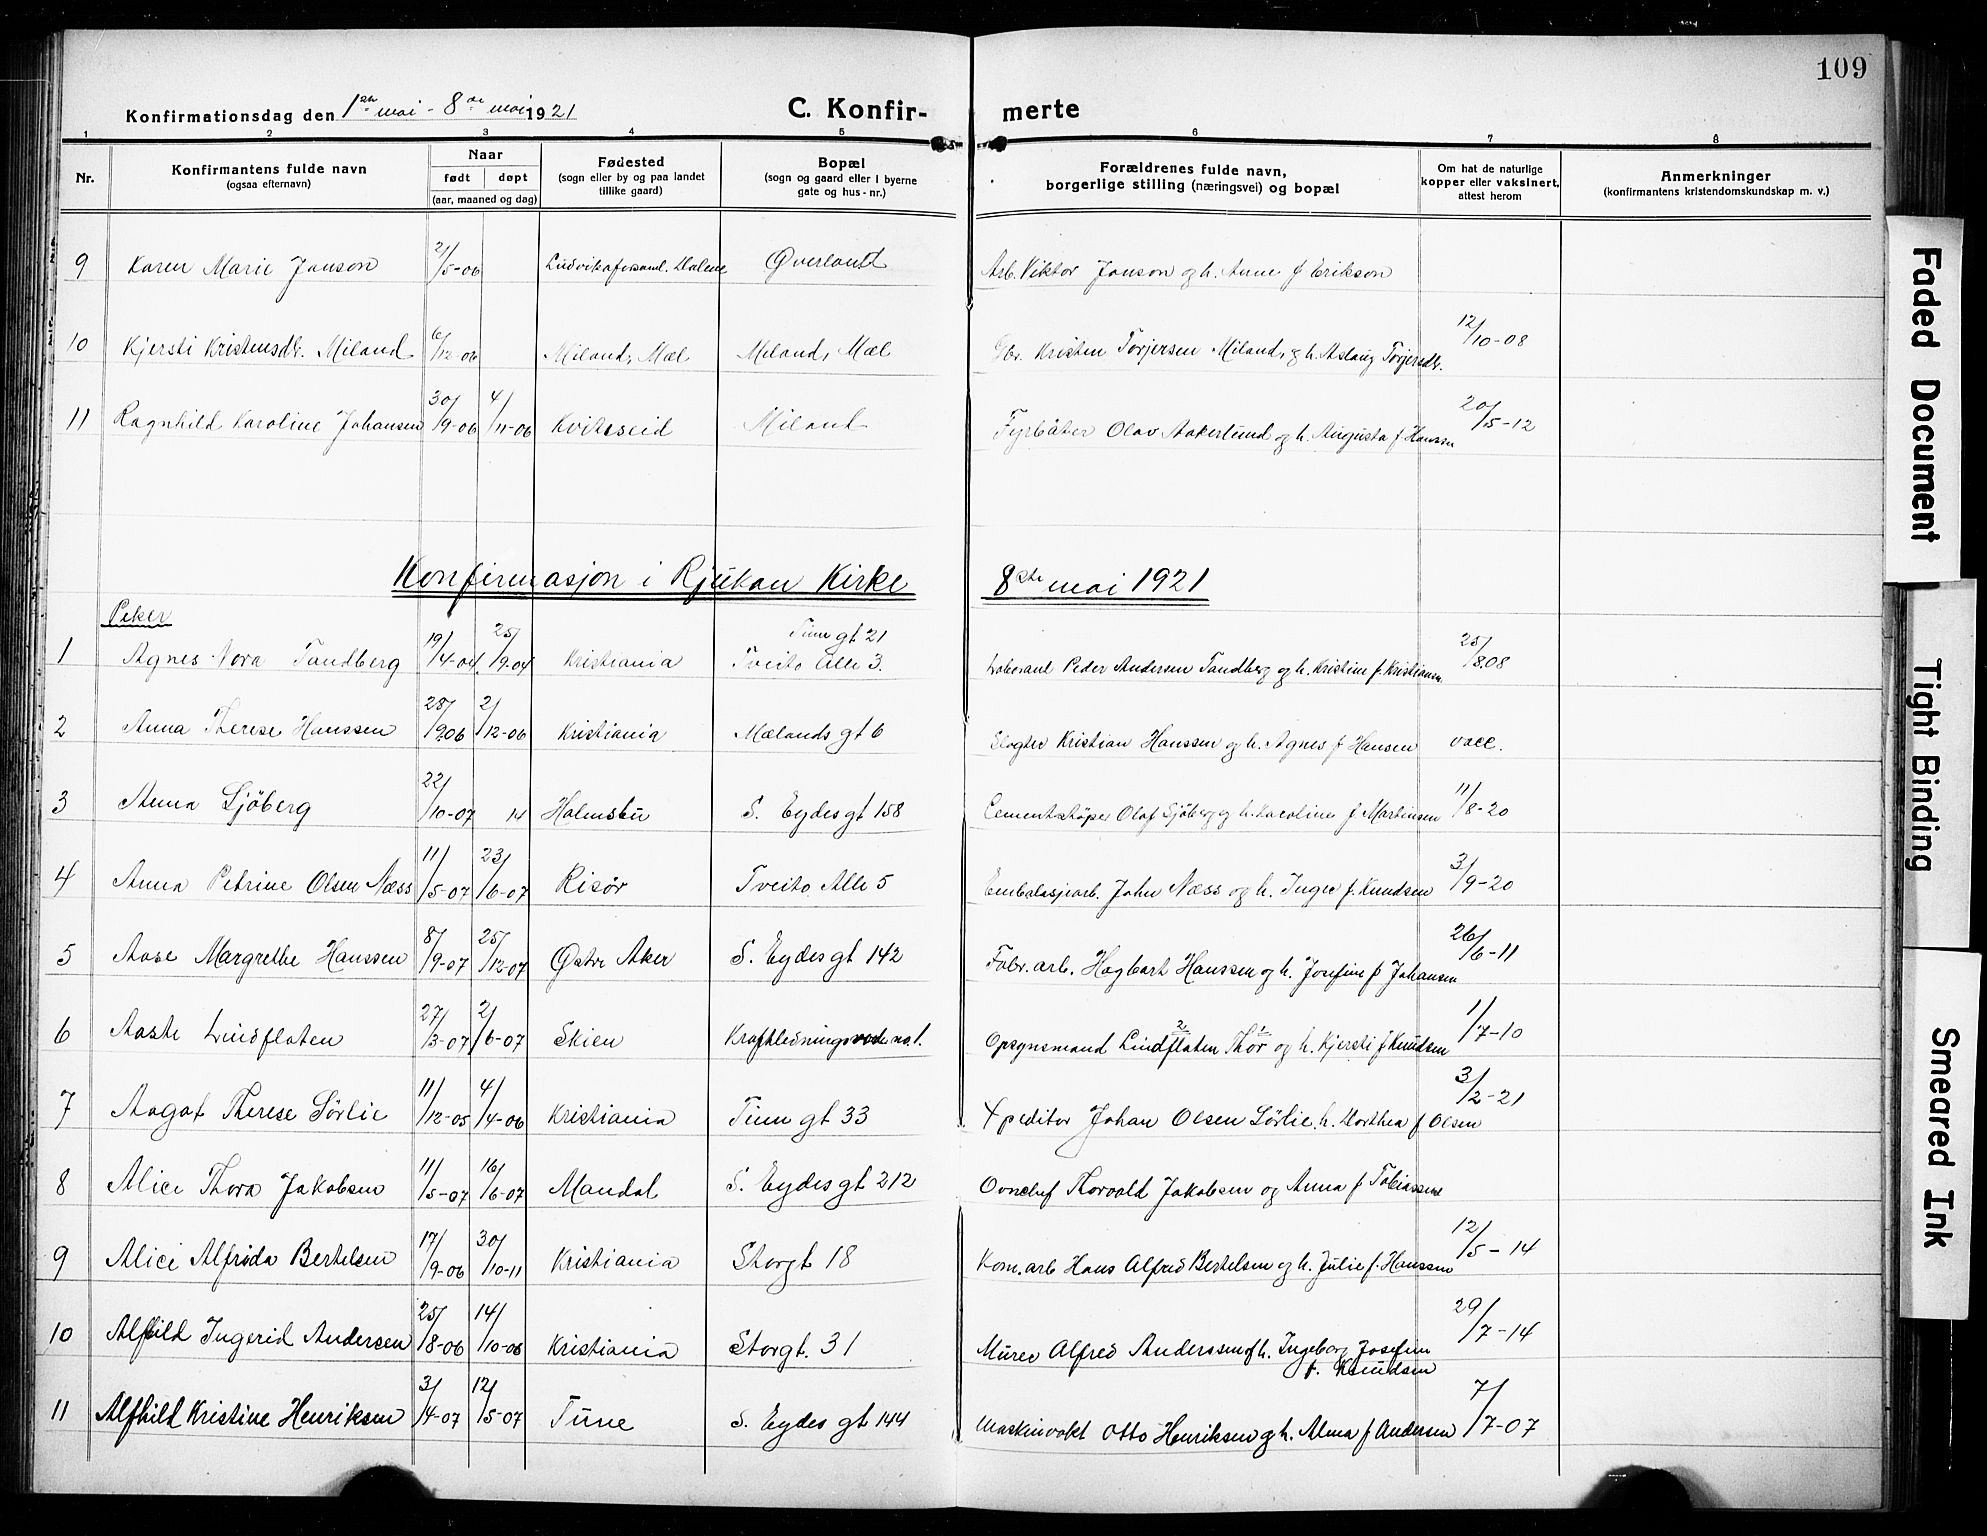 109
Konfirmationsdag den 1ste mai - 8de mai 1921 C. Konfir- merte
1 2 3 4 5 6 7 8
Nr. Konfirmantens fulde navn (ogsaa efternavn) Naar født døpt (aar, maaned og dag) Fødested (sogn eller by og paa landet tillike gaard) Bopæl (sogn og gaard eller i byerne gate og hus-nr.) Forældrenes fulde navn, borgerlige stilling (næringsvei) og bopæl Om hat de naturlige kopper eller vaksinert, attest herom Anmerkninger (konfirmantens kristendomskundskap m. v.)
9 Karen Marie Janson 21/5-06 Ludvikaforsaml. Dalene Øverland Arb. Viktor Janson og h. Anne f Erikson
10 Kjersti Kristensdtr. Miland 6/12-06 Miland, Mæl Miland, Mæl Gbr. Kristen Torjersen Miland, og h. Aslaug Torjersdtr. 12/10-08
11 Ragnhild Karoline Johansen 30/9-06 4/11-06 Kviteseid Miland Fyrbøter Olav Aakerlund og h. Augusta f Hanssen 20/5-12
Konfirmasjon i Rjukan Kirke 8de mai 1921
Piker
Tinn gt 21
1 Agnes Nora Tandberg 19/4-04 25/9-04 Kristiania Tveito Alle 3. Laborant Peder Andersen Tandberg og h. Kristine f. Kristiansen 25/8.08
2 Anna Therese Hanssen 28/9.06 2/12-06 Kristiania Mælandsgt 6 Slagter Kristian Hanssen og h. Agnes f Hansen vacc.
3 Anna Sjöberg 22/10-07 14 Holmsbu S. Eydesgt 158 Cementstøper Olof Sjöberg og h. Karoline f Martinsen 11/8-20
4 Anna Petrine Olsen Næss 11/5-07 23/6-07 Risör Tveito Alle 5 Embalasjearb. John Næss og h. Inger f. Knudsen 3/9-20
5 Aase Margrethe Hanssen 8/9-07 25/12-07 Østre Aker S. Eydesgt 142 Fabr. arb. Hagbart Hanssen og h. Josefine f Johansen 26/6-11
6 Aaste Lindflaten 27/3-07 2/6-07 Skien Kraftledningsveien no 1. Opsynsmand Lindflaten 2 Thor 1 og h. Kjersti f Knudsen 1/7-10
7 Aagot Therese Sörlie 11/12-05 4/4-06 Kristiania Tinn gt 33 Xpeditor Johan Olsen Sörlie, h. Dorthea f Olsen 3/2-21
8 Alice Thora Jakobsen 11/5-07 16/6-07 Mandal S. Eydesgt 212 Ovnchef Thorvald Jakobsen og Anna f Tobiassen
9 Alice Alfrida Bertelsen 17/9-06 30/10-11 Kristiania Storgt 18 Kom. arb Hans Alfred Bertelsen og h. Julie f. Hanssen 12/5-14
10 Alfhild Ingerid Andersen 25/8-06 14/10-06 Kristiania Storgt. 31 Murer Alfred Anderssen og h. Ingeborg Josefine f. Knudsen 29/7-14
11 Alfhild Kristine Henriksen 3/4-07 12/5-07 Tune S. Eydes gt 144 Maskinvakt Otto Henriksen og h. Alma f Andersen 7/7-07
Faded Document
Tight Binding
Smeared Ink